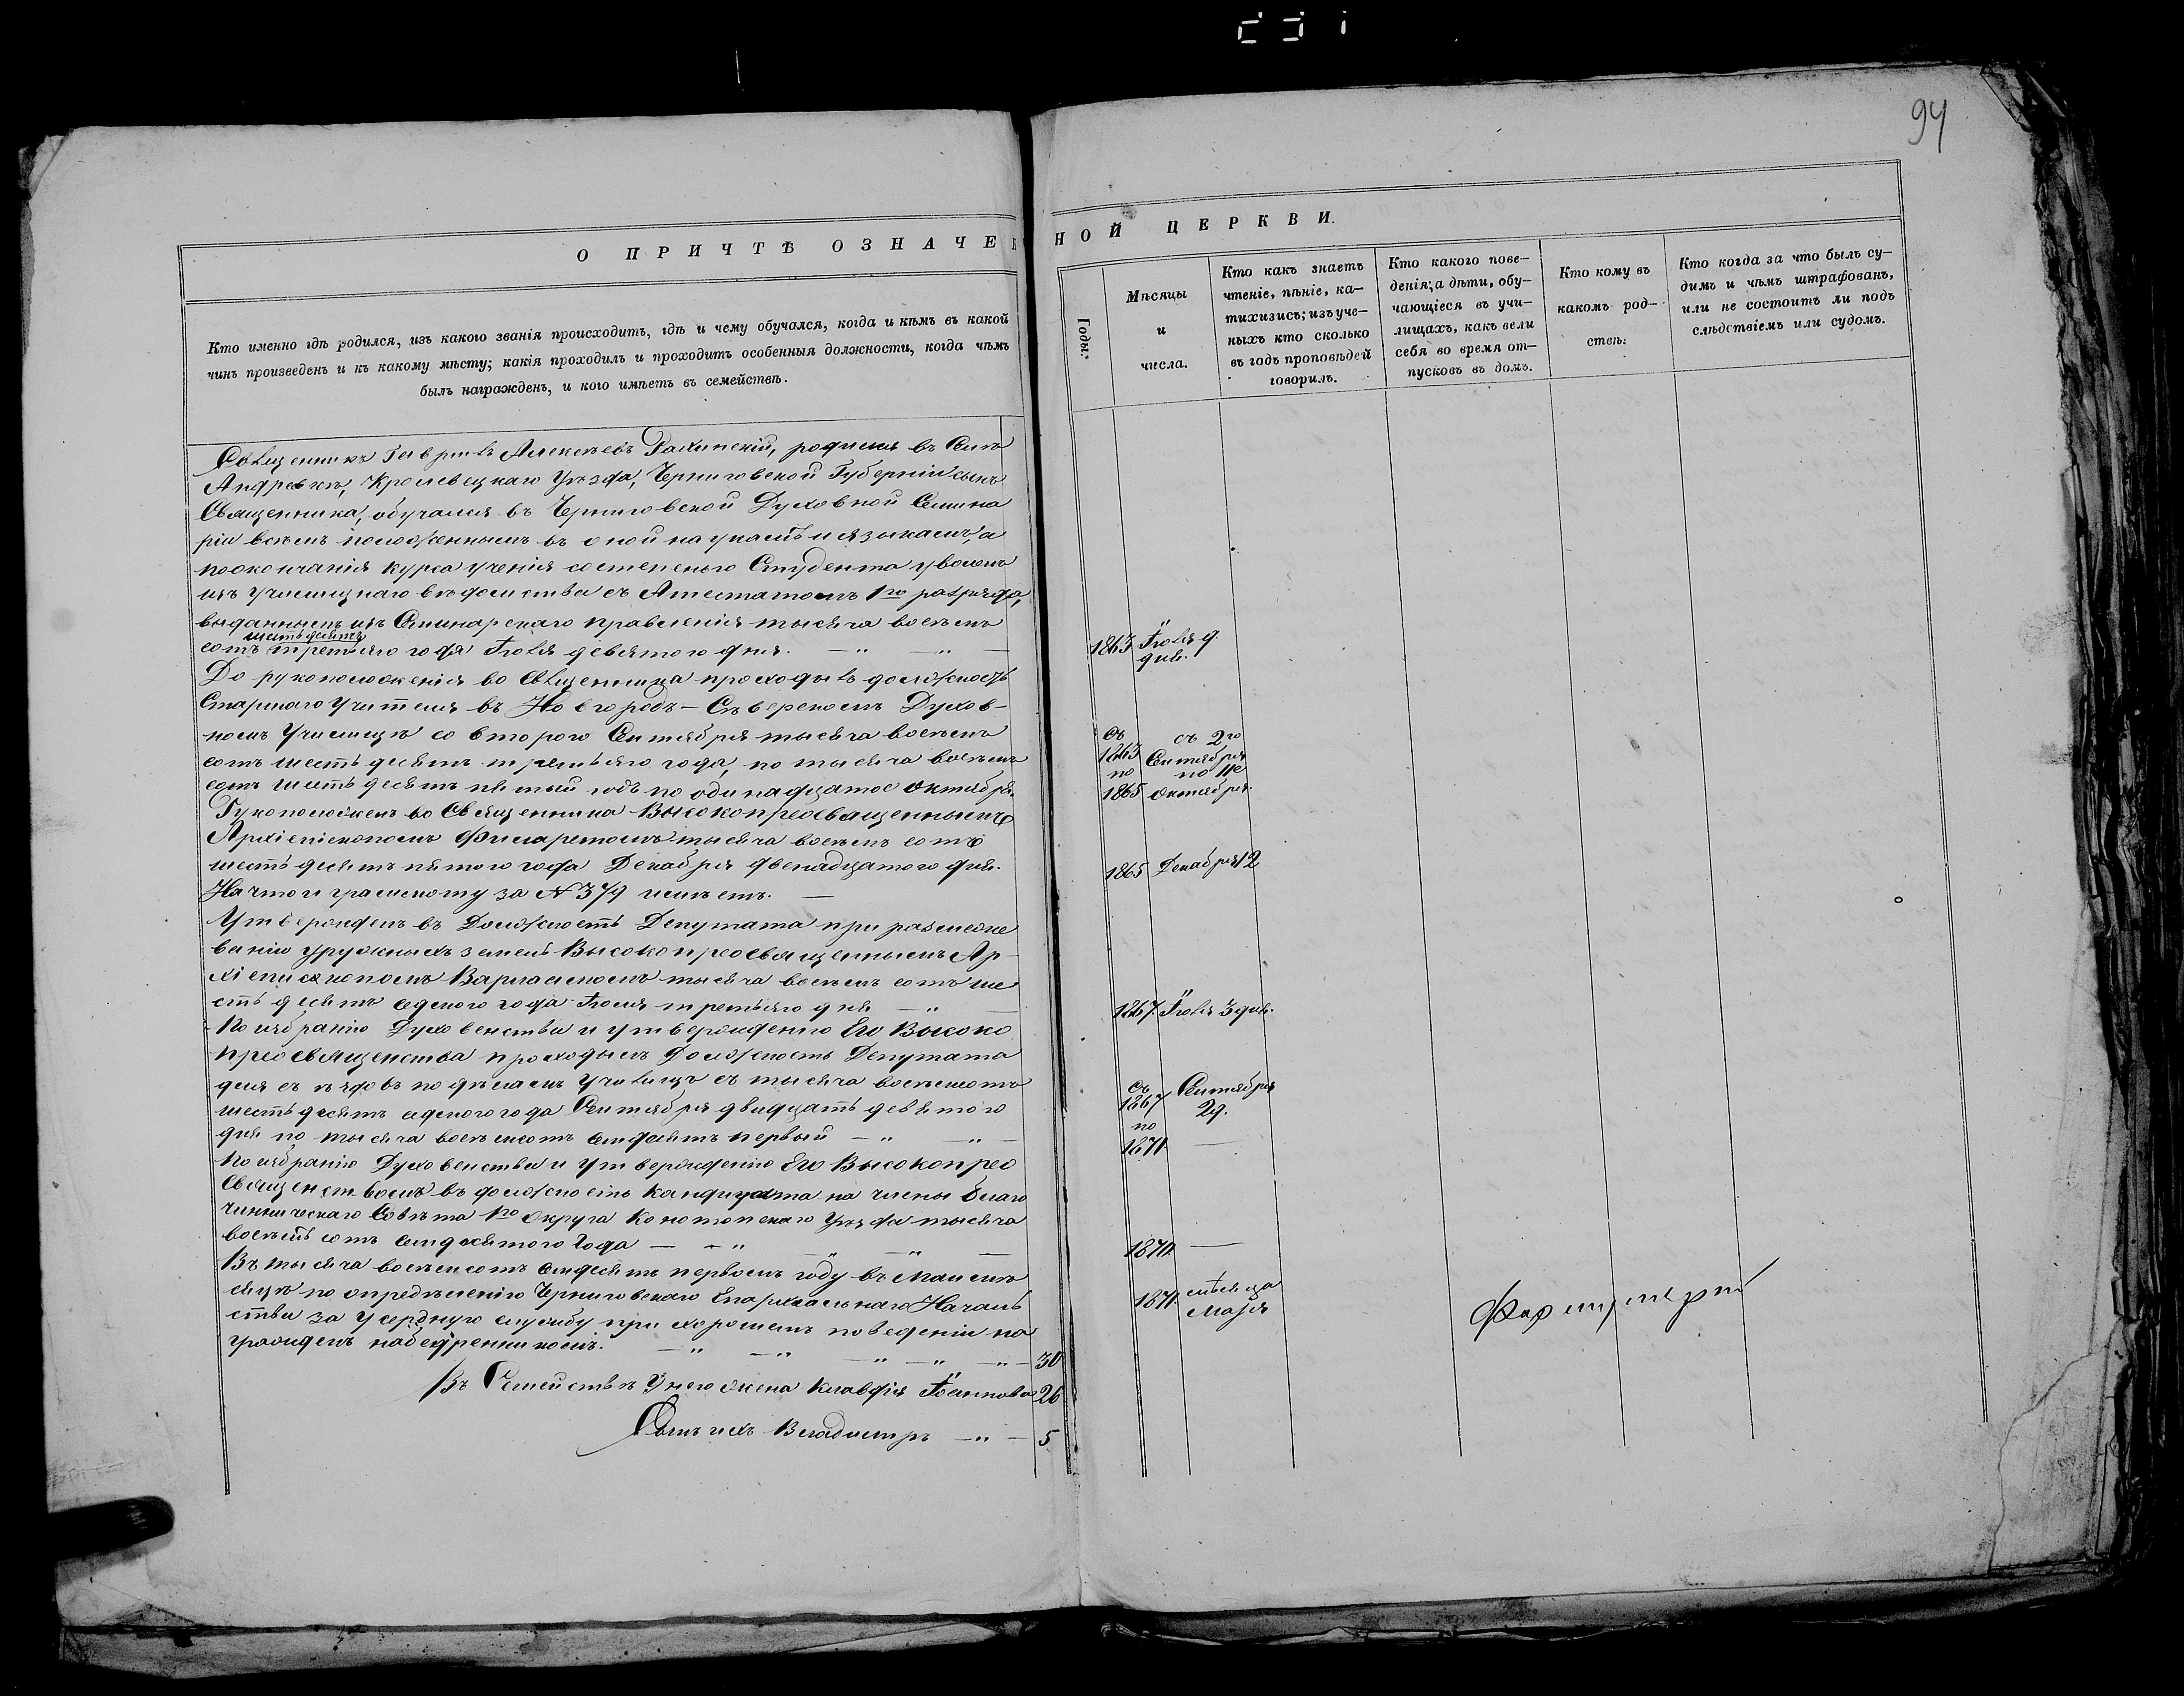 94
О ПРИЧТѢ ОЗНАЧЕН
НОЙ ЦЕРКВИ.
Кто именно гдѣ родился, изъ какого званія происходитъ, гдѣ и чему обучался, когда и кѣмъ въ какой
чинъ произведенъ и къ какому мѣсту; какія проходилъ и проходитъ особенныя должности, когда чѣмъ
былъ награжденъ, и кого имѣетъ въ семействѣ.
Годы.
Мѣсяцы
и
числа.
Кто какъ знаетъ
чтеніе, пѣніе, ка-
тихизисъ; изъ уче-
ныхъ кто сколько
въ годъ проповѣдей
говорилъ.
Кто какого пове-
денія; а дѣти, обу-
чающіеся въ учи-
лищахъ, какъ вели
себя во время от-
пусковъ въ домъ.
Кто кому въ
какомъ род-
ствѣ.
Кто когда за что былъ су-
димъ и чѣмъ штрафованъ,
или не состоитъ ли подъ
слѣдствіемъ или судомъ.
Священникъ Гавріилъ Алексѣевъ родился въ Селѣ
Андреевкѣ, Кролевецкаго Уѣзда, Черниговской Губерніи сынъ
Священника, обучался въ Черниговской Духовной Семина
ріи всѣмъ положеннымъ въ оной наукамъ и языкамъ, а
по окончаніи курса ученія со степенью Студента уволенъ
изъ училищнаго вѣдомства съ Атестатомъ 1го разряда,
выданнымъ изъ Семинарскаго правленія тысяча восемь
шестьдесятъ
сотъ третьяго года Іюля девятого дня. — " — " —
1863 Іюля 9
дня.
До рукоположенія во Священника проходилъ должность
Старшаго Учителя въ Новгородъ-Сѣверскомъ Духов-
номъ Училищѣ со второго Сентября тысяча восемь
сотъ шестьдесятъ третьяго года, по тысяча восемь
сотъ шестьдесятъ пятый годъ по одинадцатое октября.
съ
1863
по
1865
съ 2го
Сентября
по 11е
октября.
Рукоположенъ во Священника Высокопреосвященнымъ
Архіепископомъ Филаретомъ тысяча восемь сотъ
шестьдесятъ пятого года Декабря двенадцатого дня.
На что и грамоту за № 379 имѣетъ. —
1865 Декабря 12
Утвержденъ въ Должность Депутата при размеже
ваніи ружныхъ земель Высокопреосвященнымъ Ар-
хіепископомъ Варлаамомъ тысяча восемь сотъ ше
стьдесятъ седмого года Іюля третьяго дня — " —
1867 Іюля 3 дня.
По избранію Духовенства и утвержденію Его Высоко
преосвященства проходилъ Должность Депутата
для съѣздовъ по дѣламъ Училищъ съ тысяча восемьсотъ
шестьдесятъ седмого года Сентября двадцать девятого
дня по тысяча восемьсотъ семдесятъ первый — " — " —
съ
1867
по
1871
Сентября
29.
По избранію Духовенства и утвержденію Его Высокопрео
священствомъ въ должность кандидата на члены благо
чинническаго Совѣта 1го округа Конотопскаго Уѣзда тысяча
восемь сотъ семдесятого года — " — " — " —
1870 —
Въ тысяча восемьсотъ семдесятъ первомъ году въ Маѣ мѣ
сяцѣ по опредѣленію Черниговскаго Епархіальнаго Началь
ства за усердную службу при хорошемъ поведеніи на
гражденъ набедренникомъ. — " — " — " — " — " — 30
1871 мѣсяца
Маія
Въ Семействѣ У него жена Клавдія Іоаннова 26
Сынъ ихъ Владимиръ — " — 5